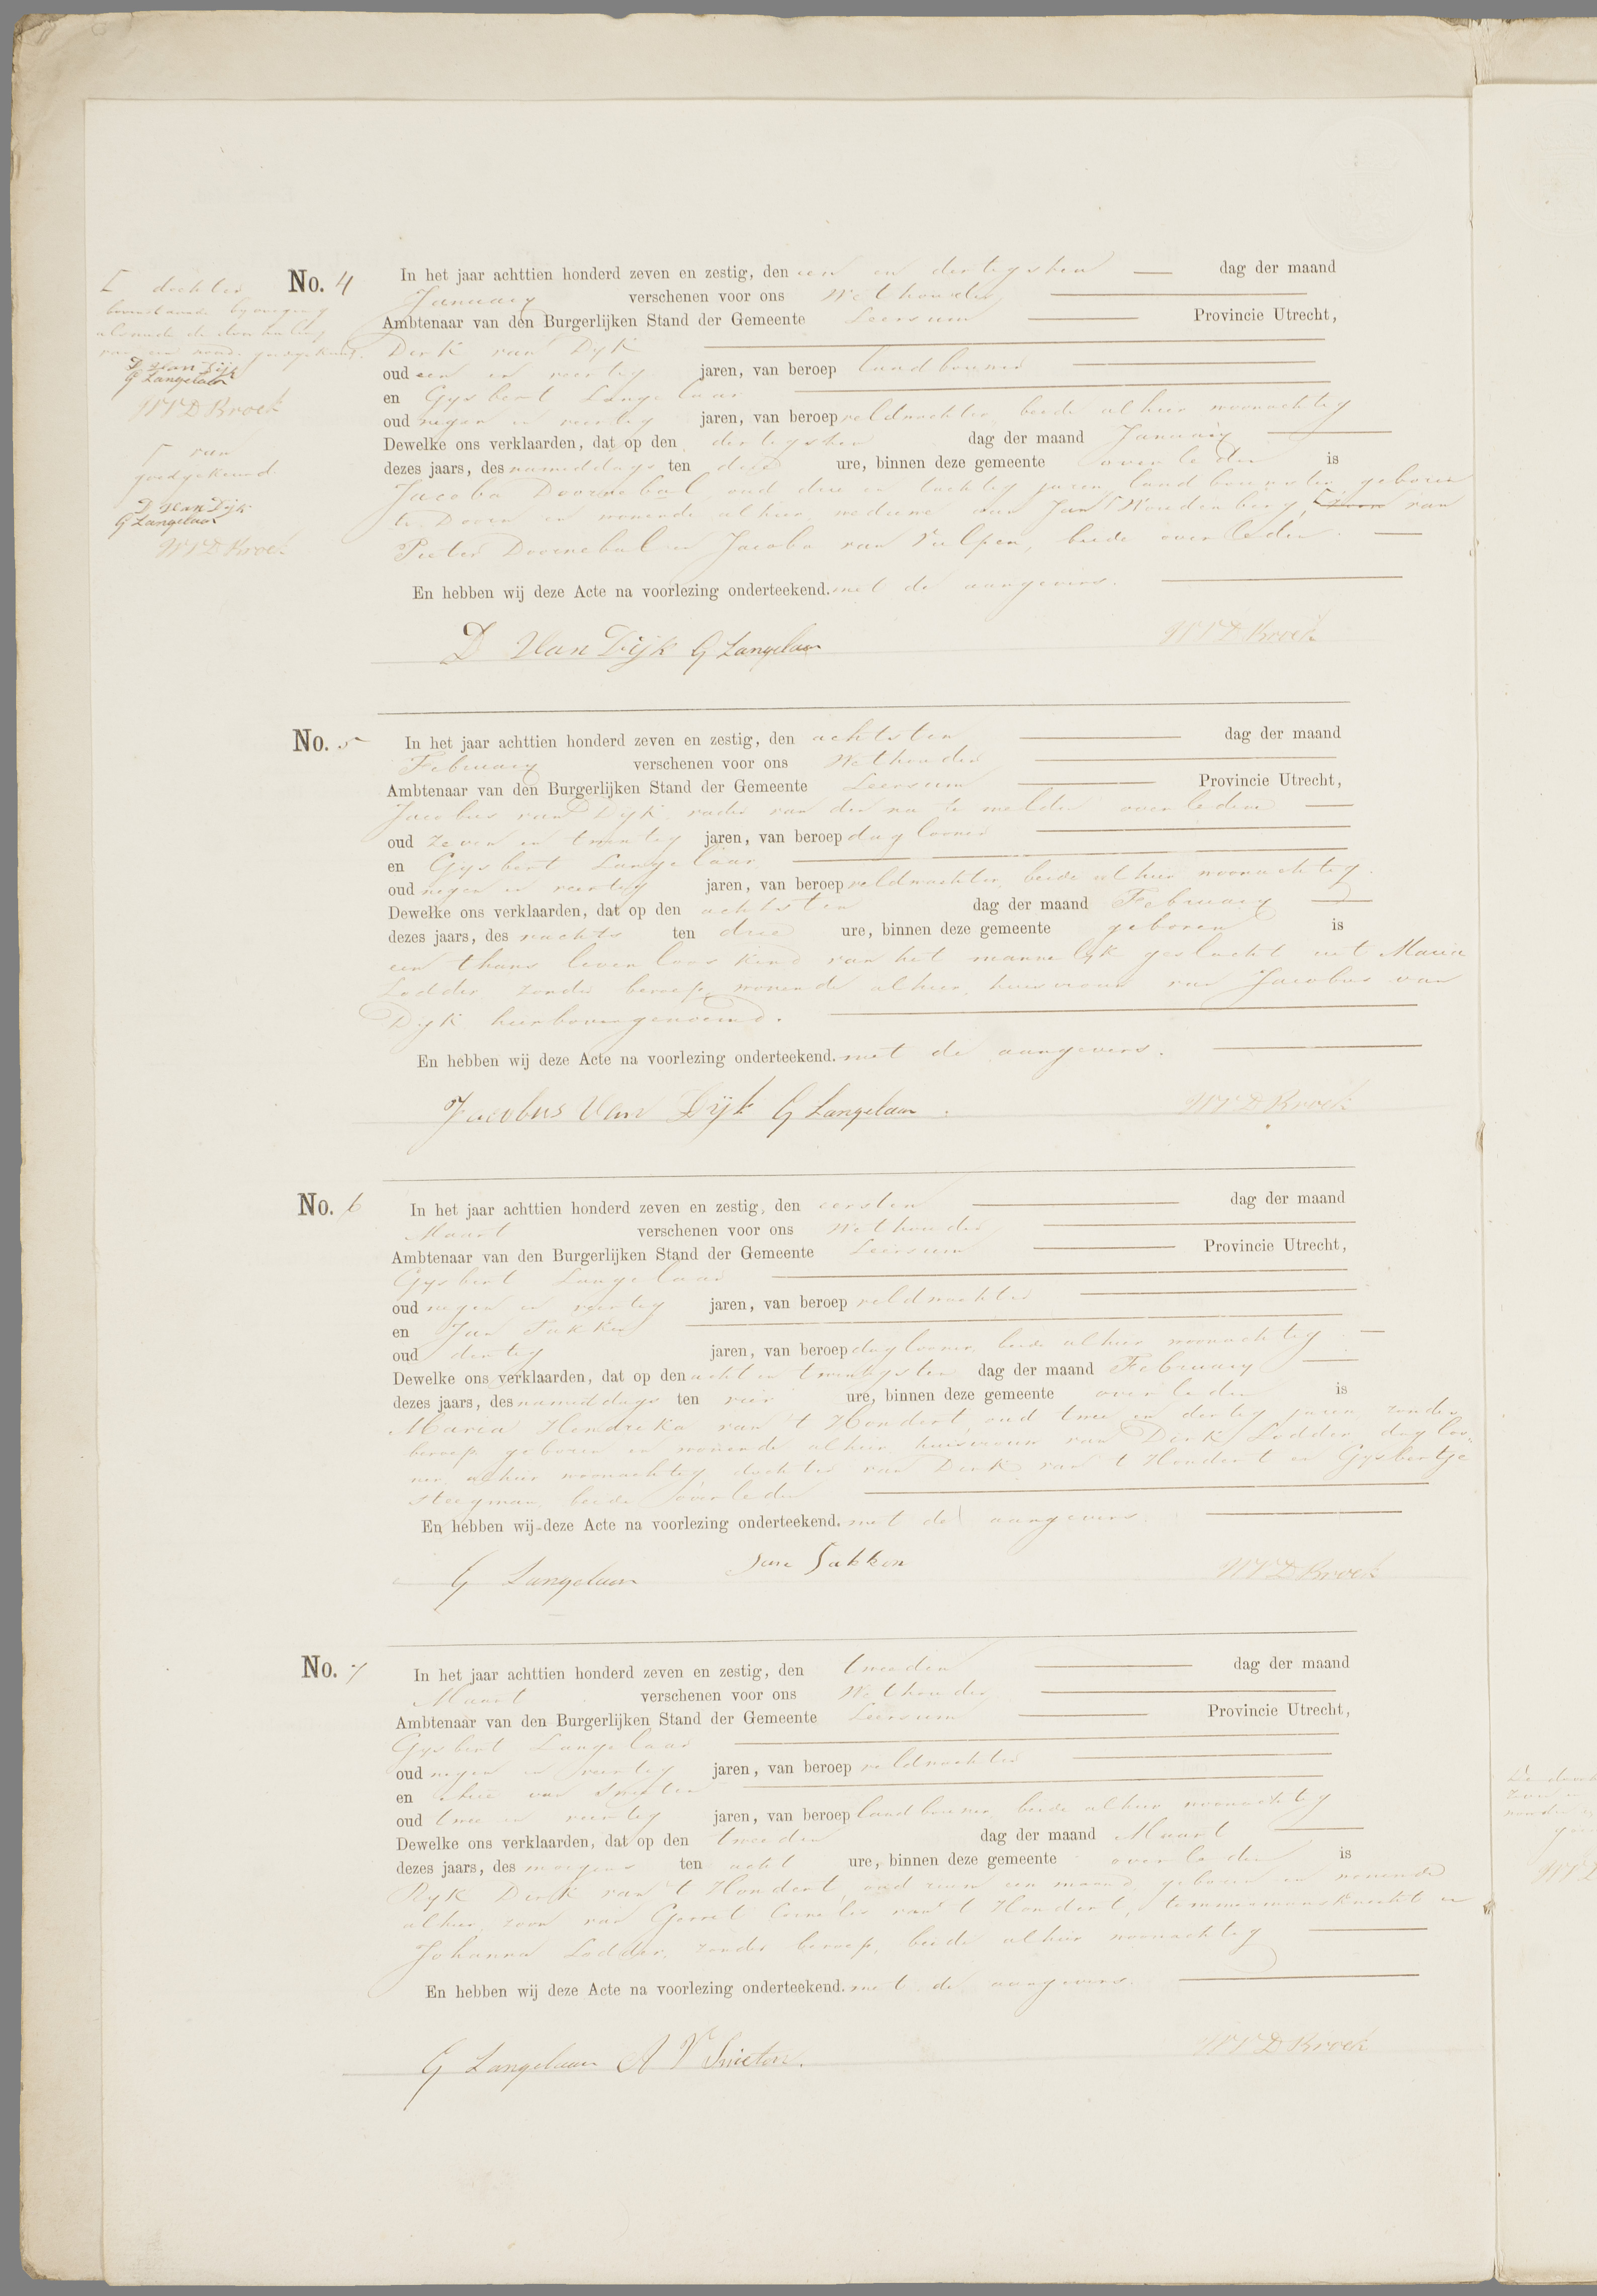 No. 4
In het jaar achttien honderd zeven en zestig, den een en dertigsten dag der maand
January verschenen voor ons Wethouder
Ambtenaar van den Burgerlijken Stand der Gemeente Leersum Provincie Utrecht,
Derk van Dyk
oud een en veertig jaren, van beroep landbouwer
en Gysbert Langelaar
oud negen en veertig jaren, van beroep veldwachter, beide alhier woonachtig
Dewelke ons verklaarden, dat op den dertigsten dag der maand January
dezes jaars, des namiddags ten drie ure, binnen deze gemeente overleden is
Jacoba Doornebal oud drie en tachtig jaren, landbouwster, geboren
te Doorn en wonende alhier, weduwe van Jan Woudenberg, zoon van
Pieter Doornebal en Jacoba van Vulpen, beide overleden.
En hebben wij deze Acte na voorlezing onderteekend. met de aangevers.
D Van Dijk G Langelaar WVD Broek
dochter
bovenstaande byvoeging
alsmede de doorhaling
van een woord goedgekeurd.
D Van Dijk
G Langelaar
WVD Broek
van
goedgekeurd.
D Van Dijk
G Langelaar
WVD Broek
No. 5
In het jaar achttien honderd zeven en zestig, den achtsten dag der maand
February verschenen voor ons Wethouder
Ambtenaar van den Burgerlijken Stand der Gemeente Leersum Provincie Utrecht,
Jacobus van Dyk, vader van den na te melden overledene
oud zeven en twintig jaren, van beroep daglooner
en Gysbert Langelaar
oud negen en veertig jaren, van beroep veldwachter, beide alhier woonachtig.
Dewelke ons verklaarden, dat op den achtsten dag der maand February
dezes jaars, des nachts ten drie ure, binnen deze gemeente geboren is
een thans levenloos kind van het mannelyk geslacht uit Maria
Lodder zonder beroep, wonende alhier, huisvrouw van Jacobus van
Dyk hierbovengenoemd.
En hebben wij deze Acte na voorlezing onderteekend. met de aangevers.
Jacobus Van Dijk G Langelaar. WVD Broek
No. 6
In het jaar achttien honderd zeven en zestig, den eersten dag der maand
Maart verschenen voor ons Wethouder
Ambtenaar van den Burgerlijken Stand der Gemeente Leersum Provincie Utrecht,
Gysbert Langelaar
oud negen en veertig jaren, van beroep veldwachter
en Jan Takken
oud dertig jaren, van beroep daglooner, beide alhier woonachtig
Dewelke ons verklaarden, dat op den acht en twintigsten dag der maand February
dezes jaars, des namiddags ten vier ure, binnen deze gemeente overleden is
Maria Hendrika van 't Hondert, oud twee en dertig jaren zonder
beroep geboren en wonende alhier, huisvrouw van Derk Lodder, dagloo-
ner, alhier woonachtig, dochter van Derk van 't Hondert en Gysbertje
Steegman, beide overleden
En hebben wij deze Acte na voorlezing onderteekend. met de aangevers.
G Langelaar Jan Takken WVD Broek
No. 7
In het jaar achttien honderd zeven en zestig, den tweeden dag der maand
Maart verschenen voor ons Wethouder
Ambtenaar van den Burgerlijken Stand der Gemeente Leersum Provincie Utrecht,
Gysbert Langelaar
oud negen en veertig jaren, van beroep veldwachter
en van
oud twee en veertig jaren, van beroep landbouwer, beide alhier woonachtig
Dewelke ons verklaarden, dat op den tweeden dag der maand Maart
dezes jaars, des morgens ten acht ure, binnen deze gemeente overleden is
Ryk Derk van 't Hondert, oud ruim een maand geboren en wonende
alhier, zoon van Gerret Cornelis van 't Hondert, timmermansknecht en
Johanna Lodder, zonder beroep, beide alhier woonachtig
En hebben wij deze Acte na voorlezing onderteekend. met de aangevers.
G Langelaar A V WVD Broek